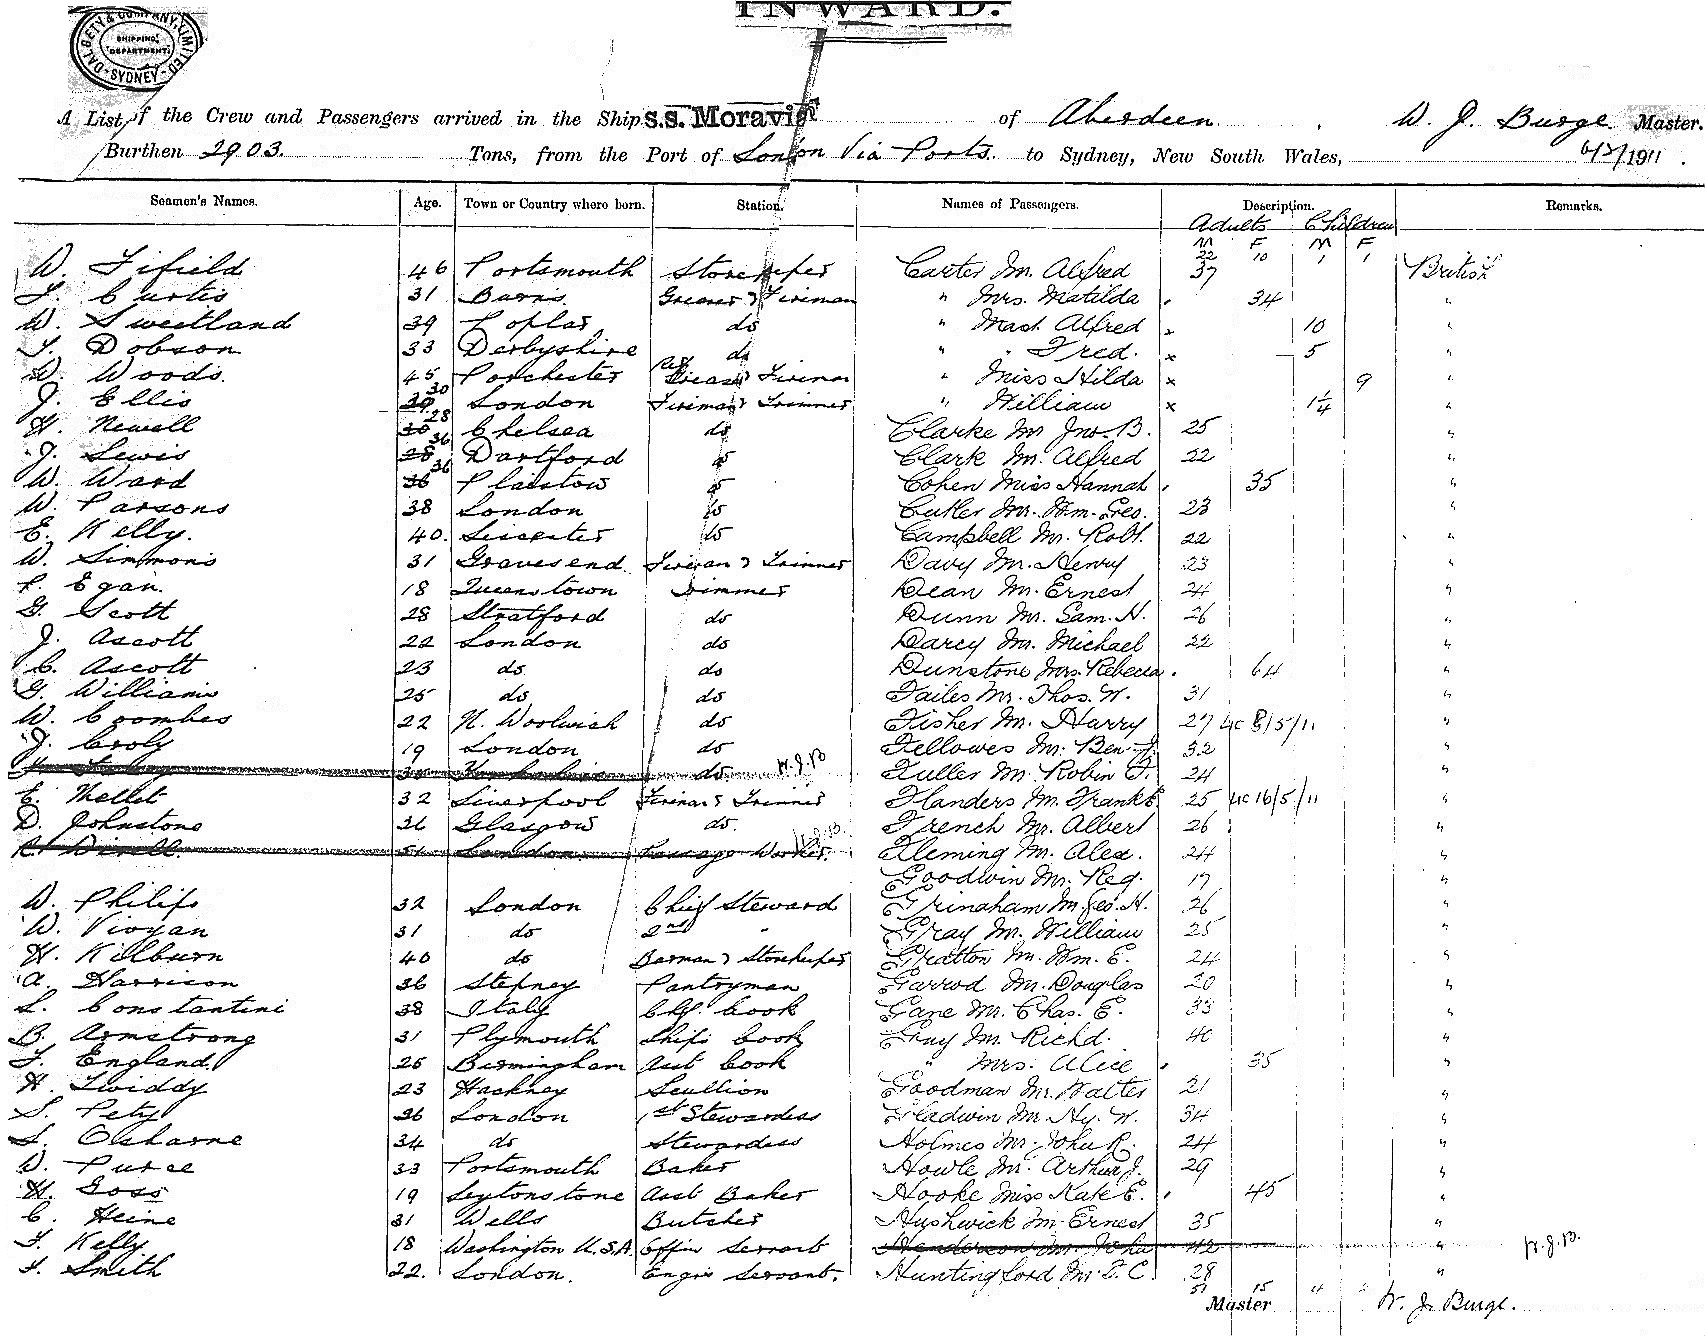 INWARD.
DALGETY & COMPANY, LIMITED
SHIPPING DEPARTMENT.
SYDNEY
A List of the Crew and Passengers arrived in the Ship S.S. Moravian of Aberdeen, W. J. Burge Master.
Burthen 2903. Tons, from the Port of London Via Ports to Sydney, New South Wales, 1911.
Seamen's Names. Age. Town or Country where born. Station. Names of Passengers. Description. Remarks.
Adults Children
M F M F
22 10 1 1
W. Fifield 46 Portsmouth Storekeeper Carter Mr. Alfred 37 British
Curtis 31 Greaser & Fireman " Mrs. Matilda 34 "
W. Sweetland 39 Poplar do " Mast. Alfred x 10 "
Dobson 33 Derbyshire do " " Fred. x 5 "
W. Woods. 45 Porchester Greaser Fireman " Miss Hilda x 9 "
J. Ellis 30 London Fireman & Trimmer " William x 1¼ "
H. Newell 28 Chelsea do Clarke Mr Jno. B. 25 "
J. Lewis 36 Dartford do Clark Mr. Alfred 22 "
W. Ward 36 Plaistow do Cohen Miss Hannah 35 "
W. Parsons 38 London do Cutler Mr. Wm. Geo. 23 "
E. Kelly. 40. Leicester do Campbell Mr. Robt. 22 "
W. Simmons 31 Gravesend Fireman & Trimmer Davy Mr. Henry 23 "
P. Egan. 18 Queenstown Trimmer Dean Mr. Ernest 24 "
G. Scott 28 Stratford do Dunn Mr. Sam. H. 26 "
J. Ascott 22 London do Darcy Mr. Michael 22 "
C. Ascott 23 do do Dunstone Mrs. Rebecca. 64 "
G. Williams 25 do do Failes Mr. Thos. W. 31 "
W. Coombes 22 N. Woolwich do Fisher Mr. Harry 27 4c 8/5/11. "
J. Croly 19 London do Fellowes Mr. Ben. J. 32 "
do W.J.B Fuller Mr. Robin F. 24 "
E. Mellet 32 Liverpool Fireman & Trimmer Flanders Mr. Frank E. 25 4c 16/5/11 "
D. Johnstone 26 Glasgow do. French Mr. Albert 26 "
51 London Passage Worker. W.J.B. Fleming Mr. Alex. 24 "
Goodwin Mr. Reg. 17 "
W. Philips 32 London Chief Steward Grinaham Mr. Geo. H. 26 "
W. Vivyan 31 do 2nd " Gray Mr. William 25 "
H. Kilburn 40 do Barman & Storekeeper Gratton Mr. Wm. E. 24 "
A. Harrison 36 Stepney Pantryman Garrod Mr. Douglas 20 "
L. Constantini 38 Italy Chf. Cook Gane Mr. Chas. E. 33 "
B. Armstrong 31 Plymouth Ships Cook Gray Mr. Richd. 40 "
F. England. 25 Birmingham Asst Cook " Mrs. Alice 35 "
H. Twiddy 23 Hackney Scullion Goodman Mr. Walter 21 "
S. Pety 36 London 1st Stewardess Gladwin Mr. Hy. W. 34 "
Osborne 34 do Stewardess Holmes Mr. John R. 24 "
W. Purse 33 Portsmouth Baker Howle Mr. Arthur J. 29 "
H. Goss 19 Leytonstone Asst Baker Hooke Miss Kate E. 45 "
C. Heine 31 Wells Butcher Hushwick Mr. Ernest 35 "
F. Kelly 18 Washington U.S.A. Offrs Servant Henderson Mr. John 42 " W.J.B.
F. Smith 22. London. Engrs Servant. Huntingford Mr. E. C. 28 "
51 15 4 "
Master W. J. Burge.